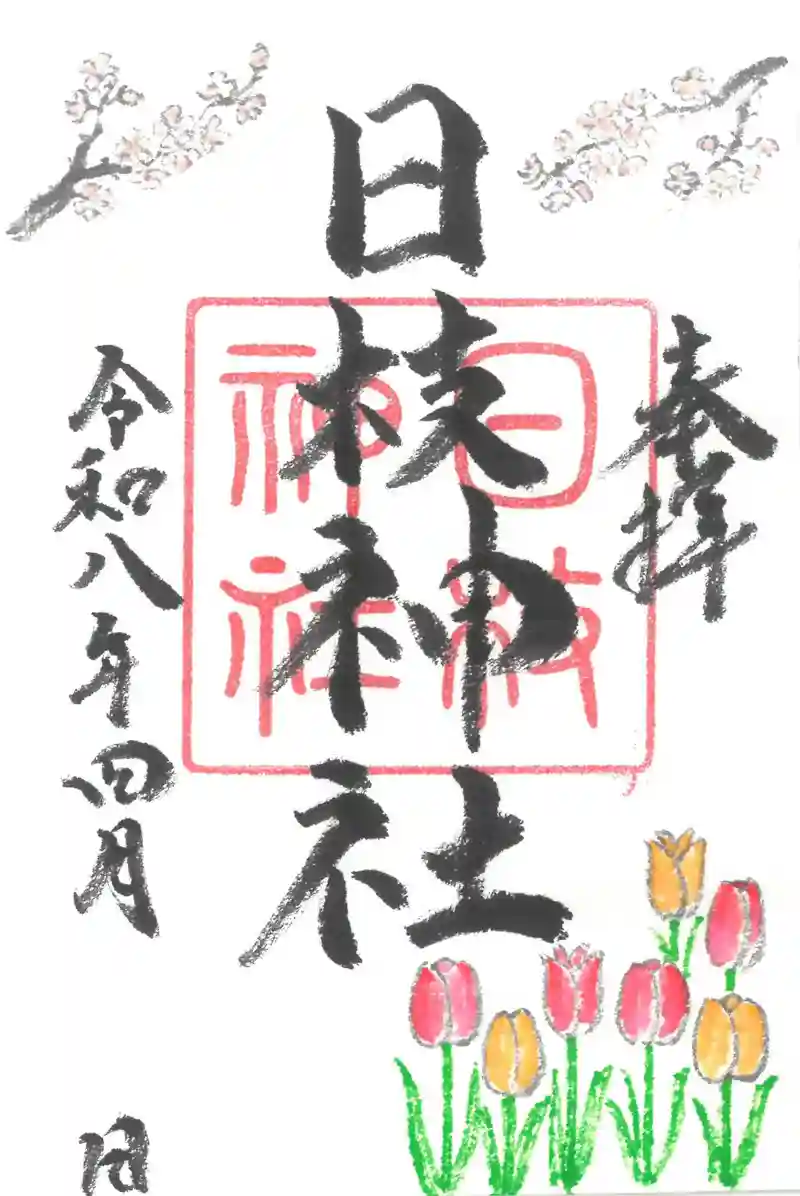 奉拝
日枝神社
日枝神社
令和八年四月 日